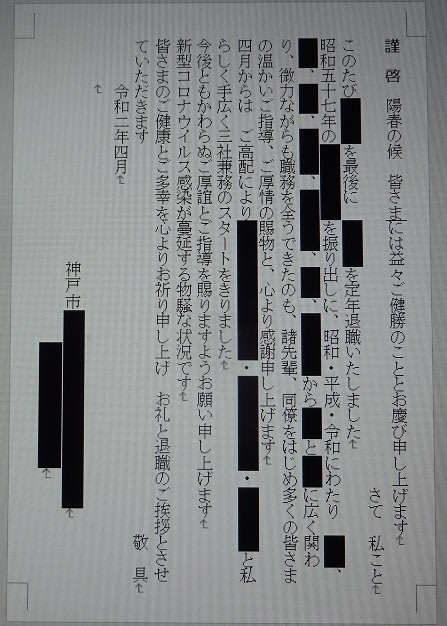 謹 啓 陽春の候 皆さまには益々ご健勝のこととお慶び申し上げます
さて 私こと
このたび を最後に を定年退職いたしました
昭和五十七年の を振り出しに、昭和・平成・令和にわたり 、
、 、 、 、 から と に広く関わ
り、微力ながらも職務を全うできたのも、諸先輩、同僚をはじめ多くの皆さま
の温かいご指導、ご厚情の賜物と、心より感謝申し上げます
四月からは ご高配により ・ ・ と私
らしく手広く三社兼務のスタートをきりました
今後ともかわらぬご厚誼とご指導を賜りますようお願い申し上げます
新型コロナウイルス感染が蔓延する物騒な状況です
皆さまのご健康とご多幸を心よりお祈り申し上げ お礼と退職のご挨拶とさせ
ていただきます
敬 具
令和二年四月
神戸市